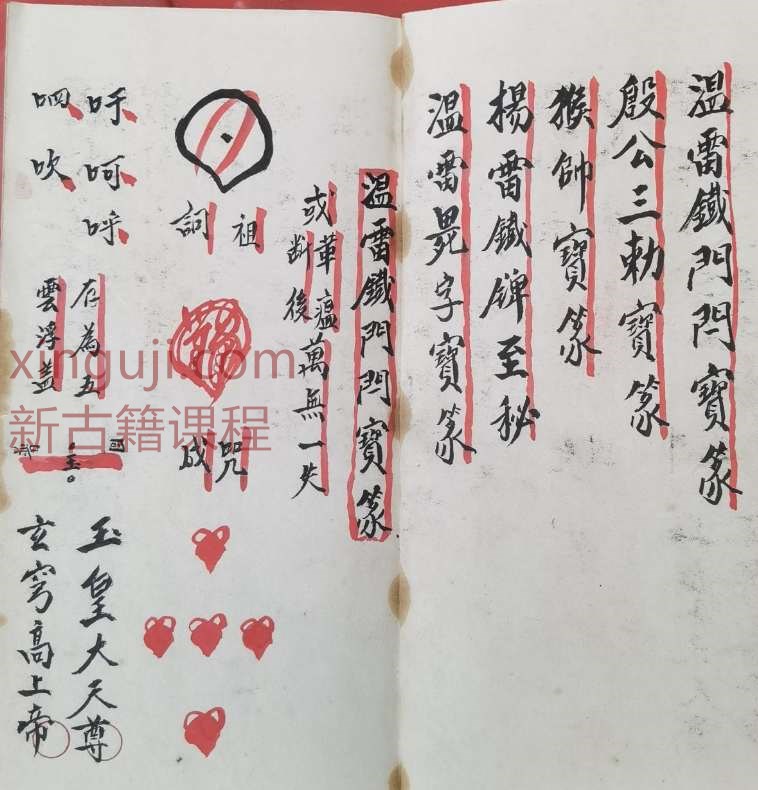 溫雷鐵門閂寶篆
殷公三勅寶篆
猴帥寶篆
揚雷鐵牌至秘
溫雷字寶篆
溫雷鐵門閂寶篆
或革瘟
斷後
萬無一失
祖
咒成
吁呵呼
呬吹
存為五
雲浮蓋
玉皇大天尊
玄穹高上帝
xinguji.com
新古籍课程